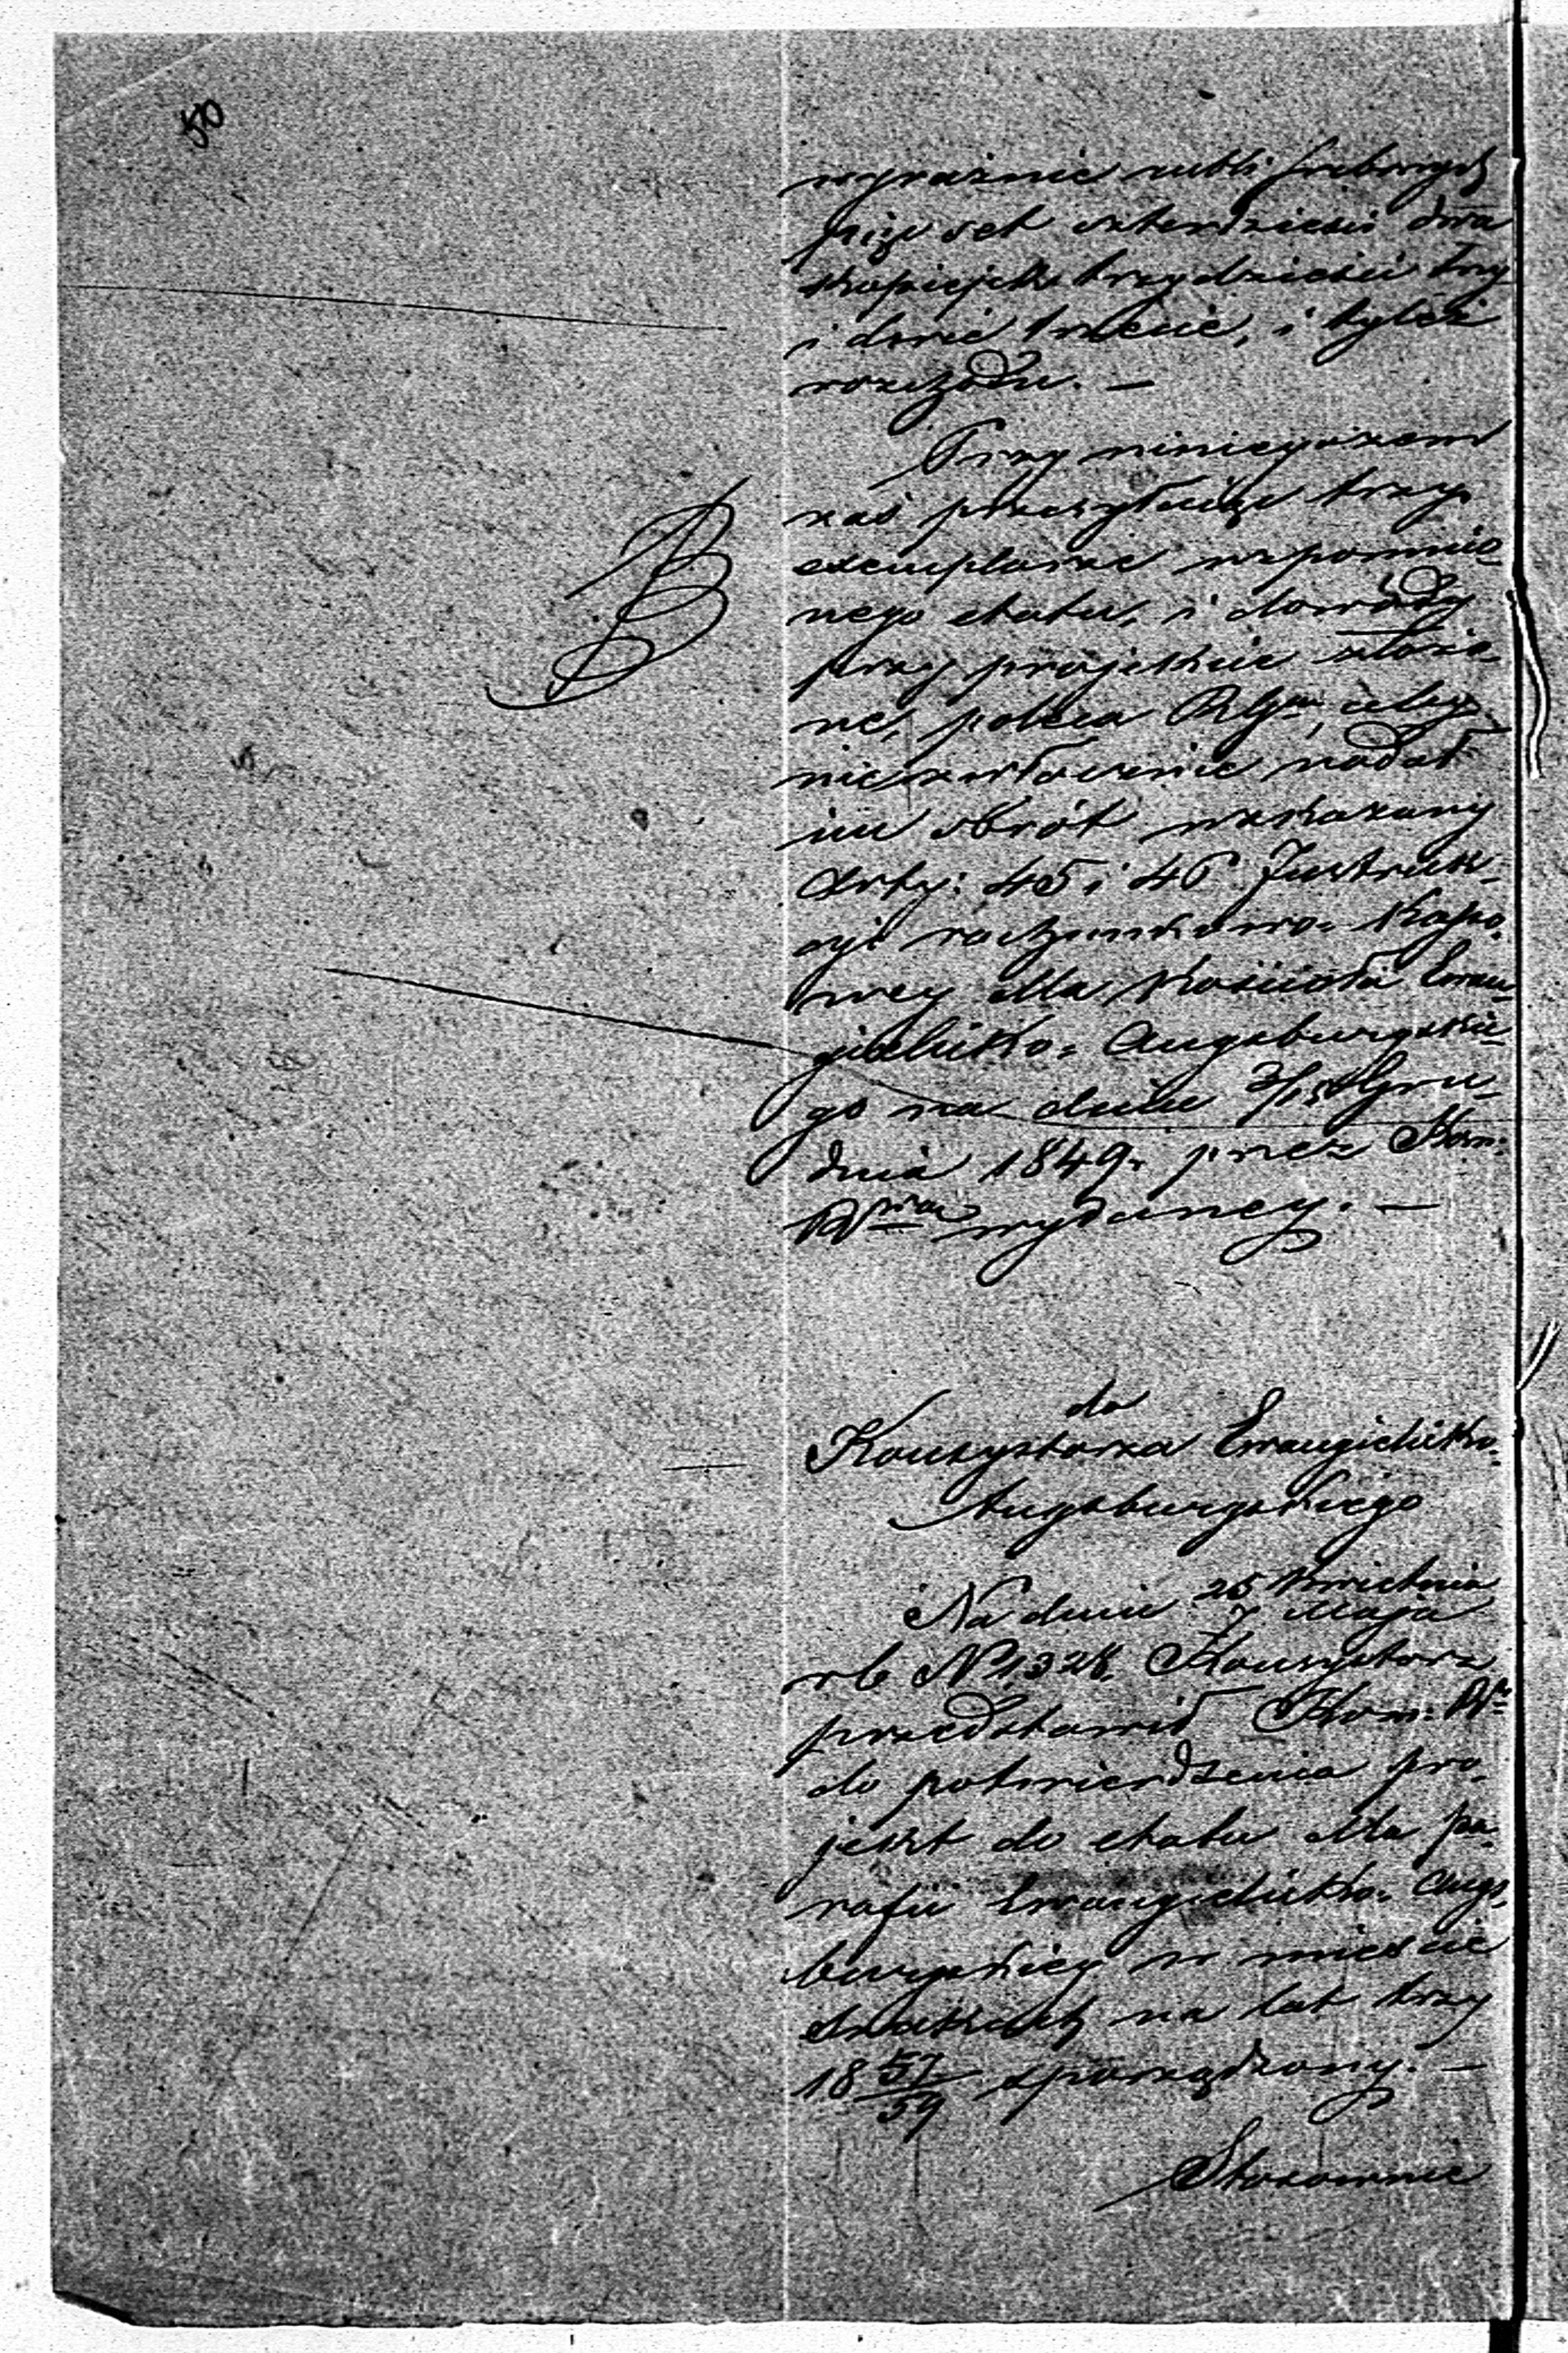 50
wyraźnie rubli srebrnych
pięć set czterdzieści dwa
kopiejek trzydzieści trzy
i dwie trzecie, i tyleż
rozchodu. —
Przy niniejszem
zaś przesyłając trzy
exemplarze wspomnio-
nego etatu, i dowody
przy projekcie złożo-
ne, poleca R Gu, ażeby
niezwłocznie nadał
im obrót wskazany
Arty: 45 i 46 Instruk-
cyi rachunkowo- Kasso-
wey dla Kościoła Ewan-
gielicko- Augsburgskie-
go na dniu 3/15 Gru-
dnia 1849 r. przez Kom:
Rw wydaney. —
do
Konsystorza Ewangielicko-
Augsburgskiego
Na dniu 25 Kwietnia
7 Maja
rb N 1328. Konsystorz
przedstawił Kom: Rw
do potwierdzenia pro-
jekt do etatu dla pa-
rafii Ewangielicko- Augs-
burgskiey w mieście
na lat trzy
18 57/59 sporządzony. —
Stosownie